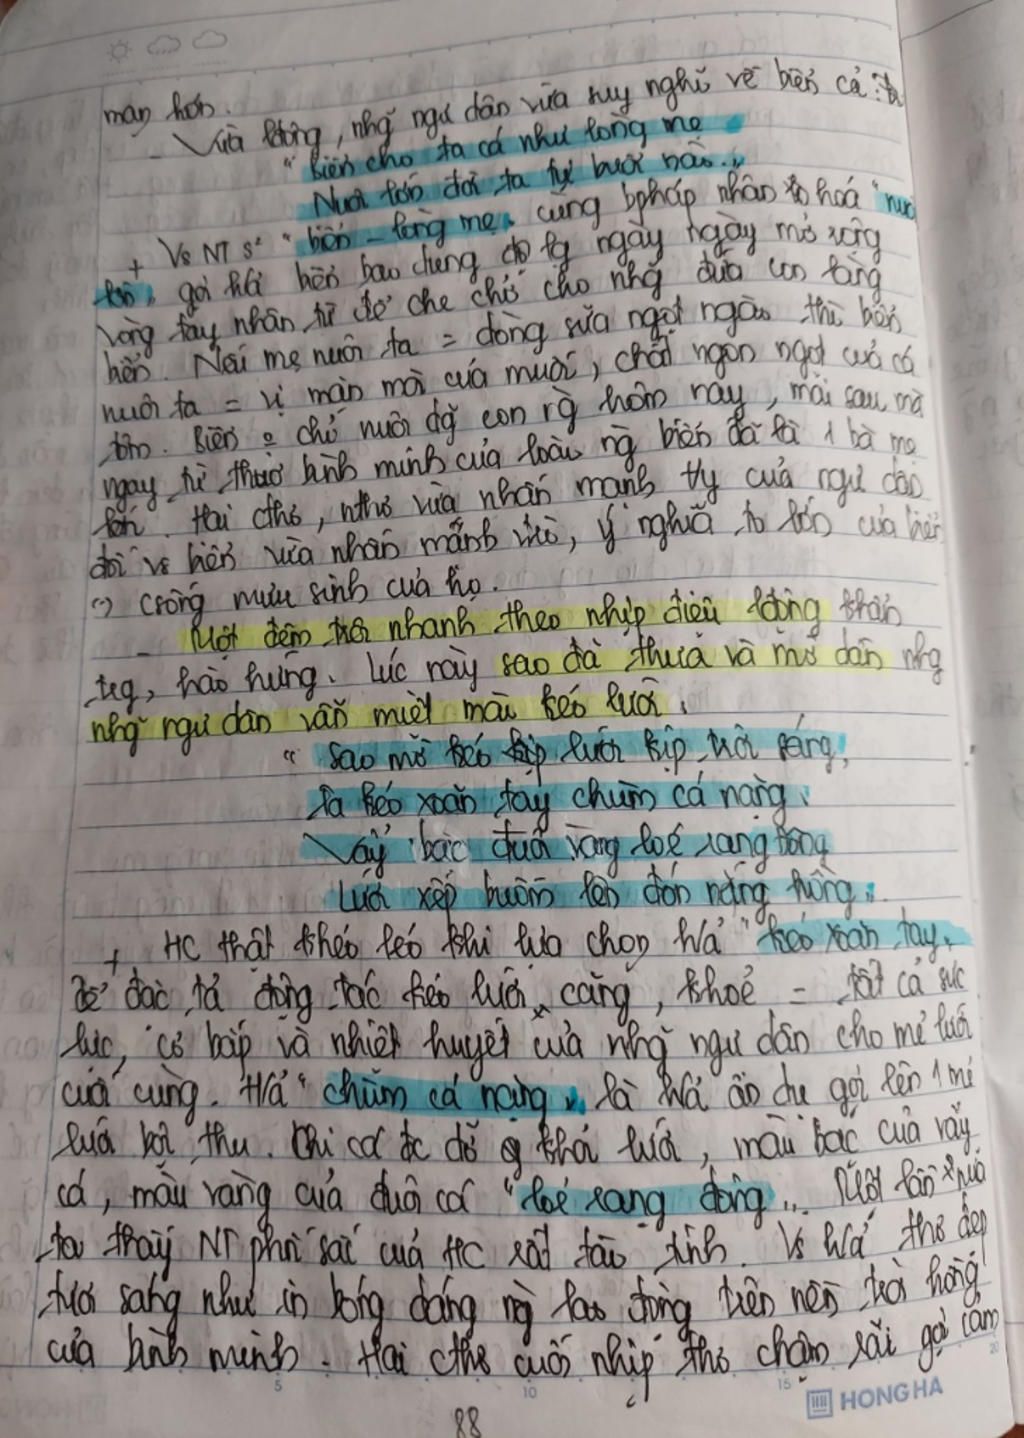 man hơn.
- Vừa lđộng, nhg̃ ngư dân vừa suy nghĩ về biển cả: ta
"Biển cho ta cá như lòng mẹ
Nuôi lớn đời ta tự buổi nào."
+ Vs NT s² "biển - lòng mẹ" cùng bpháp nhân hoá "nuôi
lớn" gợi h/ả biển bao dung ngày ngày mở rộng
vòng tay nhân từ để che chở cho nhg̃ đứa con làng
biển. Nếu mẹ nuôi ta = dòng sữa ngọt ngào thì biển
nuôi ta = vị mặn mòi của muối, chất ngon ngọt của cá
tôm. Biển o chỉ nuôi dg̃ con ng̀ hôm nay, mai sau mà
ngay từ thuở bình minh của loài ng̀ biển đã là 1 bà mẹ
lớn. Hai cthơ, như vừa nhấn mạnh ty của ngư dân
đối vs biển vừa nhấn mạnh vtrò, ý nghĩa to lớn của biển
(-) csống mưu sinh của họ.
- Một đêm trôi nhanh theo nhịp điệu lđộng khẩn
trg, hào hứng. Lúc này sao đã thưa và mờ dần nhg
nhg̃ ngư dân vẫn miệt mài kéo lưới.
"Sao mờ kéo lưới kịp trời sáng,
Ta kéo xoăn tay chùm cá nặng.
Vảy bạc đuôi vàng loé rạng đông
Lưới xếp buồm lên đón nắng hồng."
+ HC thật khéo léo khi lựa chọn h/ả "kéo xoăn tay"
để đặc tả động tác kéo lưới căng, khoẻ = tất cả sức
lực, cơ bắp và nhiệt huyết của nhg̃ ngư dân cho mẻ lưới
cuối cùng. H/ả "chùm cá nặng" là h/ả ẩn dụ gợi lên 1 mẻ
lưới bội thu. Khi cá đc dỡ khỏi lưới, màu bạc của vảy
cá, màu vàng của đuôi cá "loé rạng đông"... Một lần nữa
ta thấy NT phối sắc của HC rất tài tình. Vs h/ả thơ đẹp
tươi sáng như in bóng dáng ng̀ lao động trên nền trời hồng
của bình minh. Hai cthơ cuối nhịp thơ chậm rãi gợi cảm
5 10 15 20
HONG HA
88